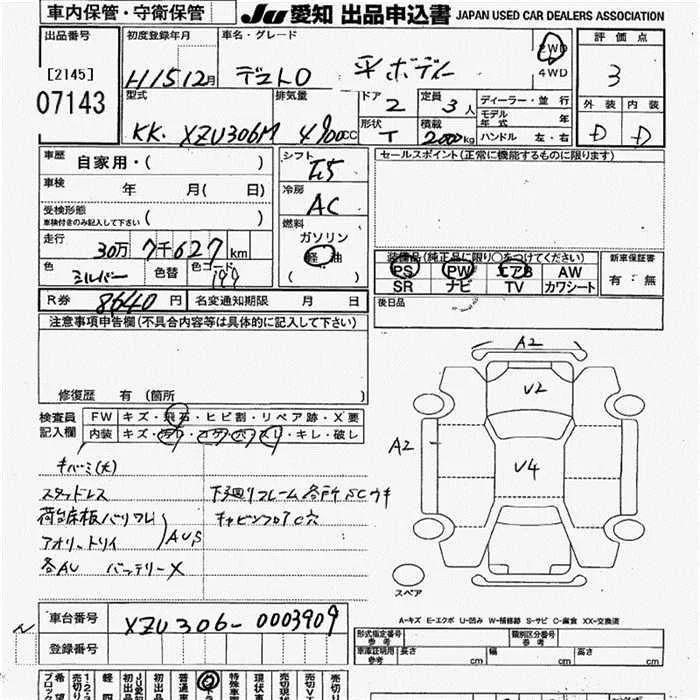 車内保管・守衛保管
JU愛知 出品申込書 JAPAN USED CAR DEALERS ASSOCIATION
出品番号
[2145]
07143
初度登録年月
H15 12月
車名・グレード
デュトロ 平ボディー
2WD
4WD
評価点
3
外装 内装
D D
型式
KK- XZU306M
排気量
4900cc
ドア
2
定員
3人
形状
T
積載
2000kg
ディーラー・並行
モデル年式 年
ハンドル 左・右
車歴
自家用・( )
車検
年 月( 日)
受検形態
車検付きのみ記入して下さい
( )
走行
30万 7千627km
色
シルバー
色替
色コード
199
シフト
F5
冷房
AC
燃料
ガソリン
軽油
( )
セールスポイント(正常に機能するものに限ります)
装備品(純正品に限り○をつけてください)
PS PW エアB AW
SR ナビ TV カワシート
新車保証書
有・無
後日品
R券 8640円 名変通知期限 月 日
注意事項申告欄(不具合内容等は具体的に記入して下さい)
修復歴 有 (箇所 )
検査員
記入欄
FW キズ・飛石・ヒビ割・リペア跡・X要
内装 キズ・汚れ・コゲ・穴・スレ・キレ・破レ
キバミ(大)
スタッドレス
荷台床板バリワレ
アオリ、トリイ
AUS
各AU バッテリーX
下廻リフレーム各所SCウキ
キャビンフロアC穴
A2
V2
A2
V4
スペア
A-キズ E-エクボ U-凹み W-補修跡 S-サビ C-腐食 XX-交換済
車台番号 XZU306-0003909
登録番号
形式指定番号
参考
類別区分番号
参考
車庫証明用
参考
長さ cm
幅 cm
高さ cm